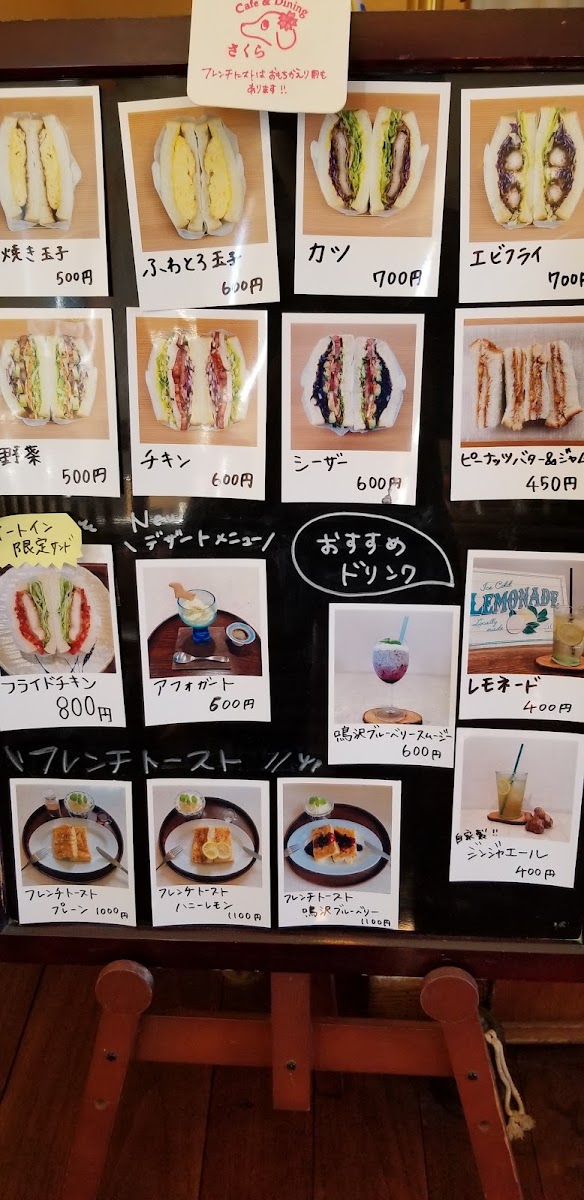 Cafe & Dining
さくら
フレンチトーストは おもちかえり用も
あります!!
焼き玉子
500円
ふわとろ玉子
600円
カツ
700円
エビフライ
700円
野菜
500円
チキン
600円
シーザー
600円
ピーナッツバター&ジャム
450円
ートイン
限定サンド
フライドチキン
800円
New
デザートメニュー
アフォガート
500円
おすすめ
ドリンク
鳴沢ブルーベリースムージー
600円
Ice Cold
LEMONADE
Locally
made
レモネード
400円
自家製!!
ジンジャエール
400円
フレンチトースト
フレンチトースト
プレーン 1000円
フレンチトースト
ハニーレモン
1100円
フレンチトースト
鳴沢ブルーベリー
1100円